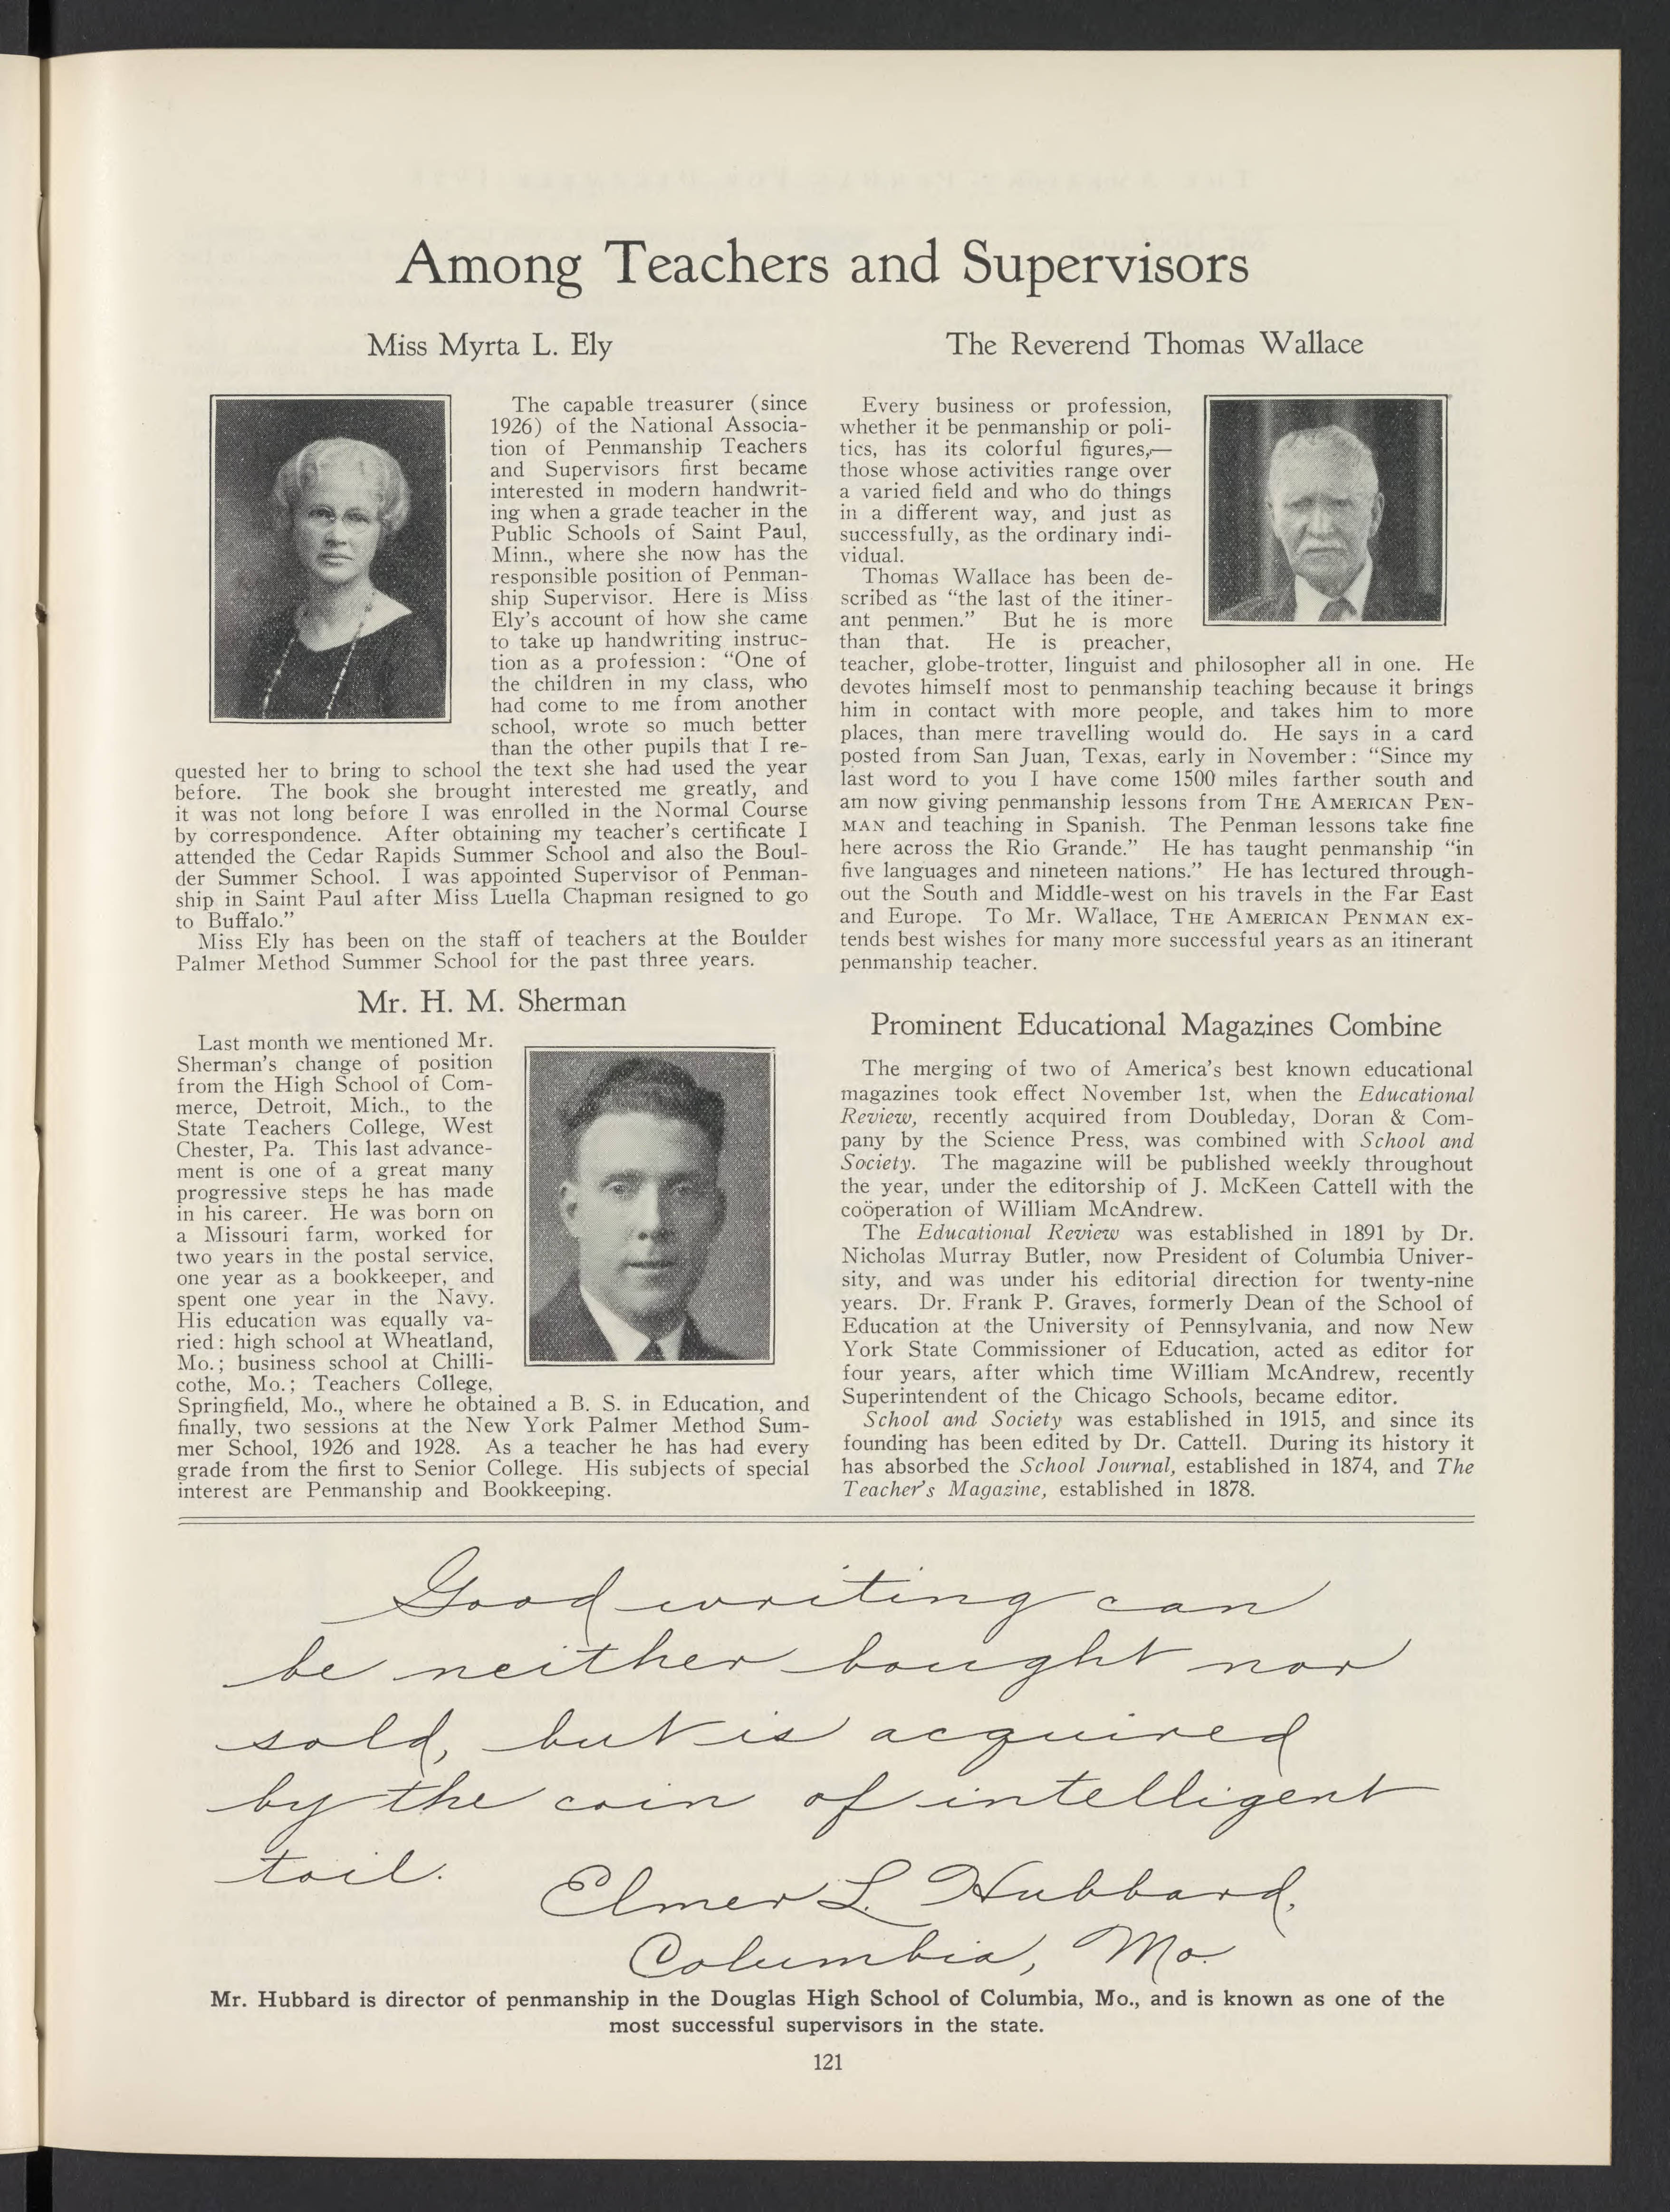 Among Teachers and Supervisors
Miss Myrta L. Ely
The capable treasurer (since
1926) of the National Associa-
tion of Penmanship Teachers
and Supervisors first became
interested in modern handwrit-
ing when a grade teacher in the
Public Schools of Saint Paul,
Minn., where she now has the
responsible position of Penman-
ship Supervisor. Here is Miss
Ely's account of how she came
to take up handwriting instruc-
tion as a profession: "One of
the children in my class, who
had come to me from another
school, wrote so much better
than the other pupils that I re-
quested her to bring to school the text she had used the year
before. The book she brought interested me greatly, and
it was not long before I was enrolled in the Normal Course
by correspondence. After obtaining my teacher's certificate I
attended the Cedar Rapids Summer School and also the Boul-
der Summer School. I was appointed Supervisor of Penman-
ship in Saint Paul after Miss Luella Chapman resigned to go
to Buffalo."
Miss Ely has been on the staff of teachers at the Boulder
Palmer Method Summer School for the past three years.
Mr. H. M. Sherman
Last month we mentioned Mr.
Sherman's change of position
from the High School of Com-
merce, Detroit, Mich., to the
State Teachers College, West
Chester, Pa. This last advance-
ment is one of a great many
progressive steps he has made
in his career. He was born on
a Missouri farm, worked for
two years in the postal service,
one year as a bookkeeper, and
spent one year in the Navy.
His education was equally va-
ried: high school at Wheatland,
Mo.; business school at Chilli-
cothe, Mo.; Teachers College,
Springfield, Mo., where he obtained a B. S. in Education, and
finally, two sessions at the New York Palmer Method Sum-
mer School, 1926 and 1928. As a teacher he has had every
grade from the first to Senior College. His subjects of special
interest are Penmanship and Bookkeeping.
The Reverend Thomas Wallace
Every business or profession,
whether it be penmanship or poli-
tics, has its colorful figures,—
those whose activities range over
a varied field and who do things
in a different way, and just as
successfully, as the ordinary indi-
vidual.
Thomas Wallace has been de-
scribed as "the last of the itiner-
ant penmen." But he is more
than that. He is preacher,
teacher, globe-trotter, linguist and philosopher all in one. He
devotes himself most to penmanship teaching because it brings
him in contact with more people, and takes him to more
places, than mere travelling would do. He says in a card
posted from San Juan, Texas, early in November: "Since my
last word to you I have come 1500 miles farther south and
am now giving penmanship lessons from THE AMERICAN PEN-
MAN and teaching in Spanish. The Penman lessons take fine
here across the Rio Grande." He has taught penmanship "in
five languages and nineteen nations." He has lectured through-
out the South and Middle-west on his travels in the Far East
and Europe. To Mr. Wallace, THE AMERICAN PENMAN ex-
tends best wishes for many more successful years as an itinerant
penmanship teacher.
Prominent Educational Magazines Combine
The merging of two of America's best known educational
magazines took effect November 1st, when the Educational
Review, recently acquired from Doubleday, Doran & Com-
pany by the Science Press, was combined with School and
Society. The magazine will be published weekly throughout
the year, under the editorship of J. McKeen Cattell with the
coöperation of William McAndrew.
The Educational Review was established in 1891 by Dr.
Nicholas Murray Butler, now President of Columbia Univer-
sity, and was under his editorial direction for twenty-nine
years. Dr. Frank P. Graves, formerly Dean of the School of
Education at the University of Pennsylvania, and now New
York State Commissioner of Education, acted as editor for
four years, after which time William McAndrew, recently
Superintendent of the Chicago Schools, became editor.
School and Society was established in 1915, and since its
founding has been edited by Dr. Cattell. During its history it
has absorbed the School Journal, established in 1874, and The
Teacher's Magazine, established in 1878.
Good writing can
be neither bought nor
sold, but is acquired
by the coin of intelligent
toil.
Elmer L. Hubbard,
Columbia, Mo.
Mr. Hubbard is director of penmanship in the Douglas High School of Columbia, Mo., and is known as one of the
most successful supervisors in the state.
121